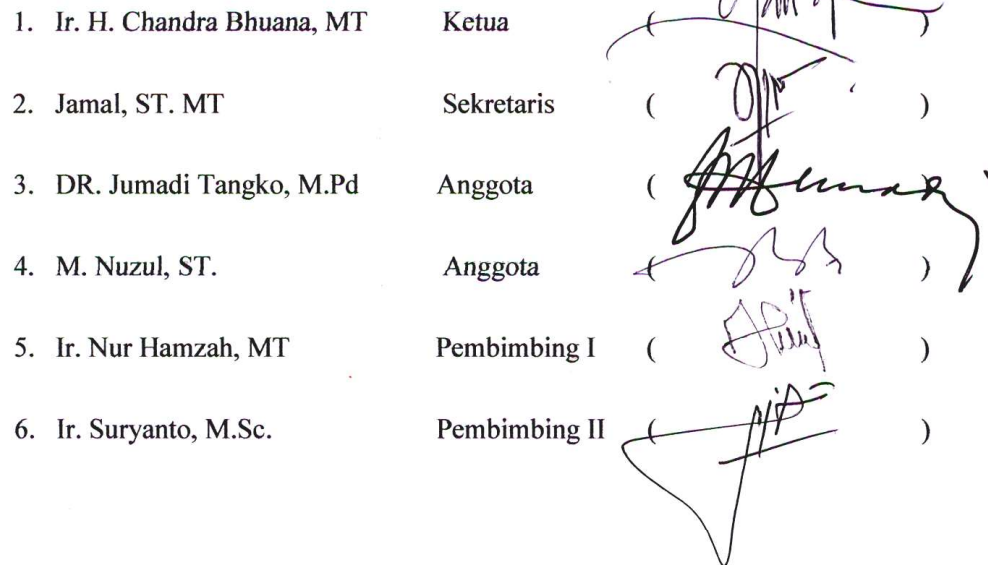 1. Ir. H. Chandra Bhuana, MT Ketua ( )
2. Jamal, ST. MT Sekretaris ( )
3. DR. Jumadi Tangko, M.Pd Anggota ( )
4. M. Nuzul, ST. Anggota ( )
5. Ir. Nur Hamzah, MT Pembimbing I ( )
6. Ir. Suryanto, M.Sc. Pembimbing II ( )